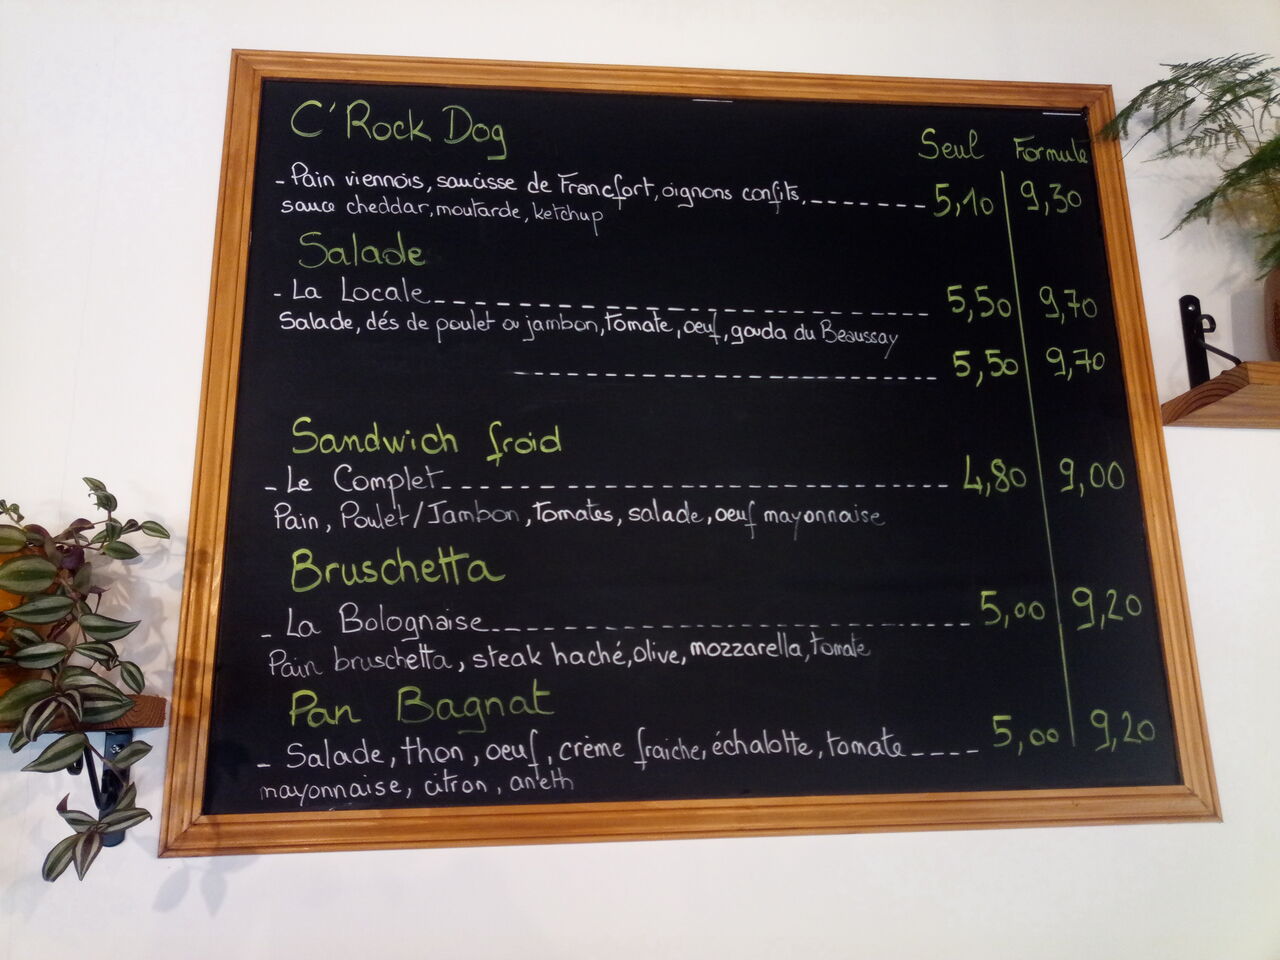 C'Rock Dog
Seul Formule
- Pain viennois, saucisse de Francfort, oignons confits, ------- 5,10 9,30
sauce cheddar, moutarde, ketchup
Salade
- La Locale ------------------ 5,50 9,70
Salade, dés de poulet ou jambon, tomate, oeuf, gouda du Beaussay
------------------ 5,50 9,70
Sandwich froid
- Le Complet ------------------ 4,80 9,00
Pain, Poulet/Jambon, tomates, salade, oeuf mayonnaise
Bruschetta
- La Bolognaise ------------------ 5,00 9,20
Pain bruschetta, steak haché, olive, mozzarella, tomate
Pan Bagnat
- Salade, thon, oeuf, crème fraiche, échalotte, tomate ---- 5,00 9,20
mayonnaise, citron, aneth